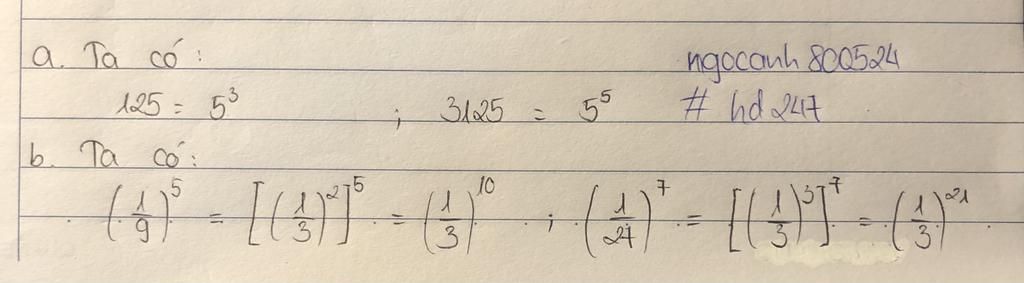 a. Ta có: ngocanh800524
125 = 5³ ; 3125 = 5⁵ # hd 247
b. Ta có:
(1/9)⁵ = [(1/3)²]⁵ = (1/3)¹⁰ ; (1/27)⁷ = [(1/3)³]⁷ = (1/3)²¹.